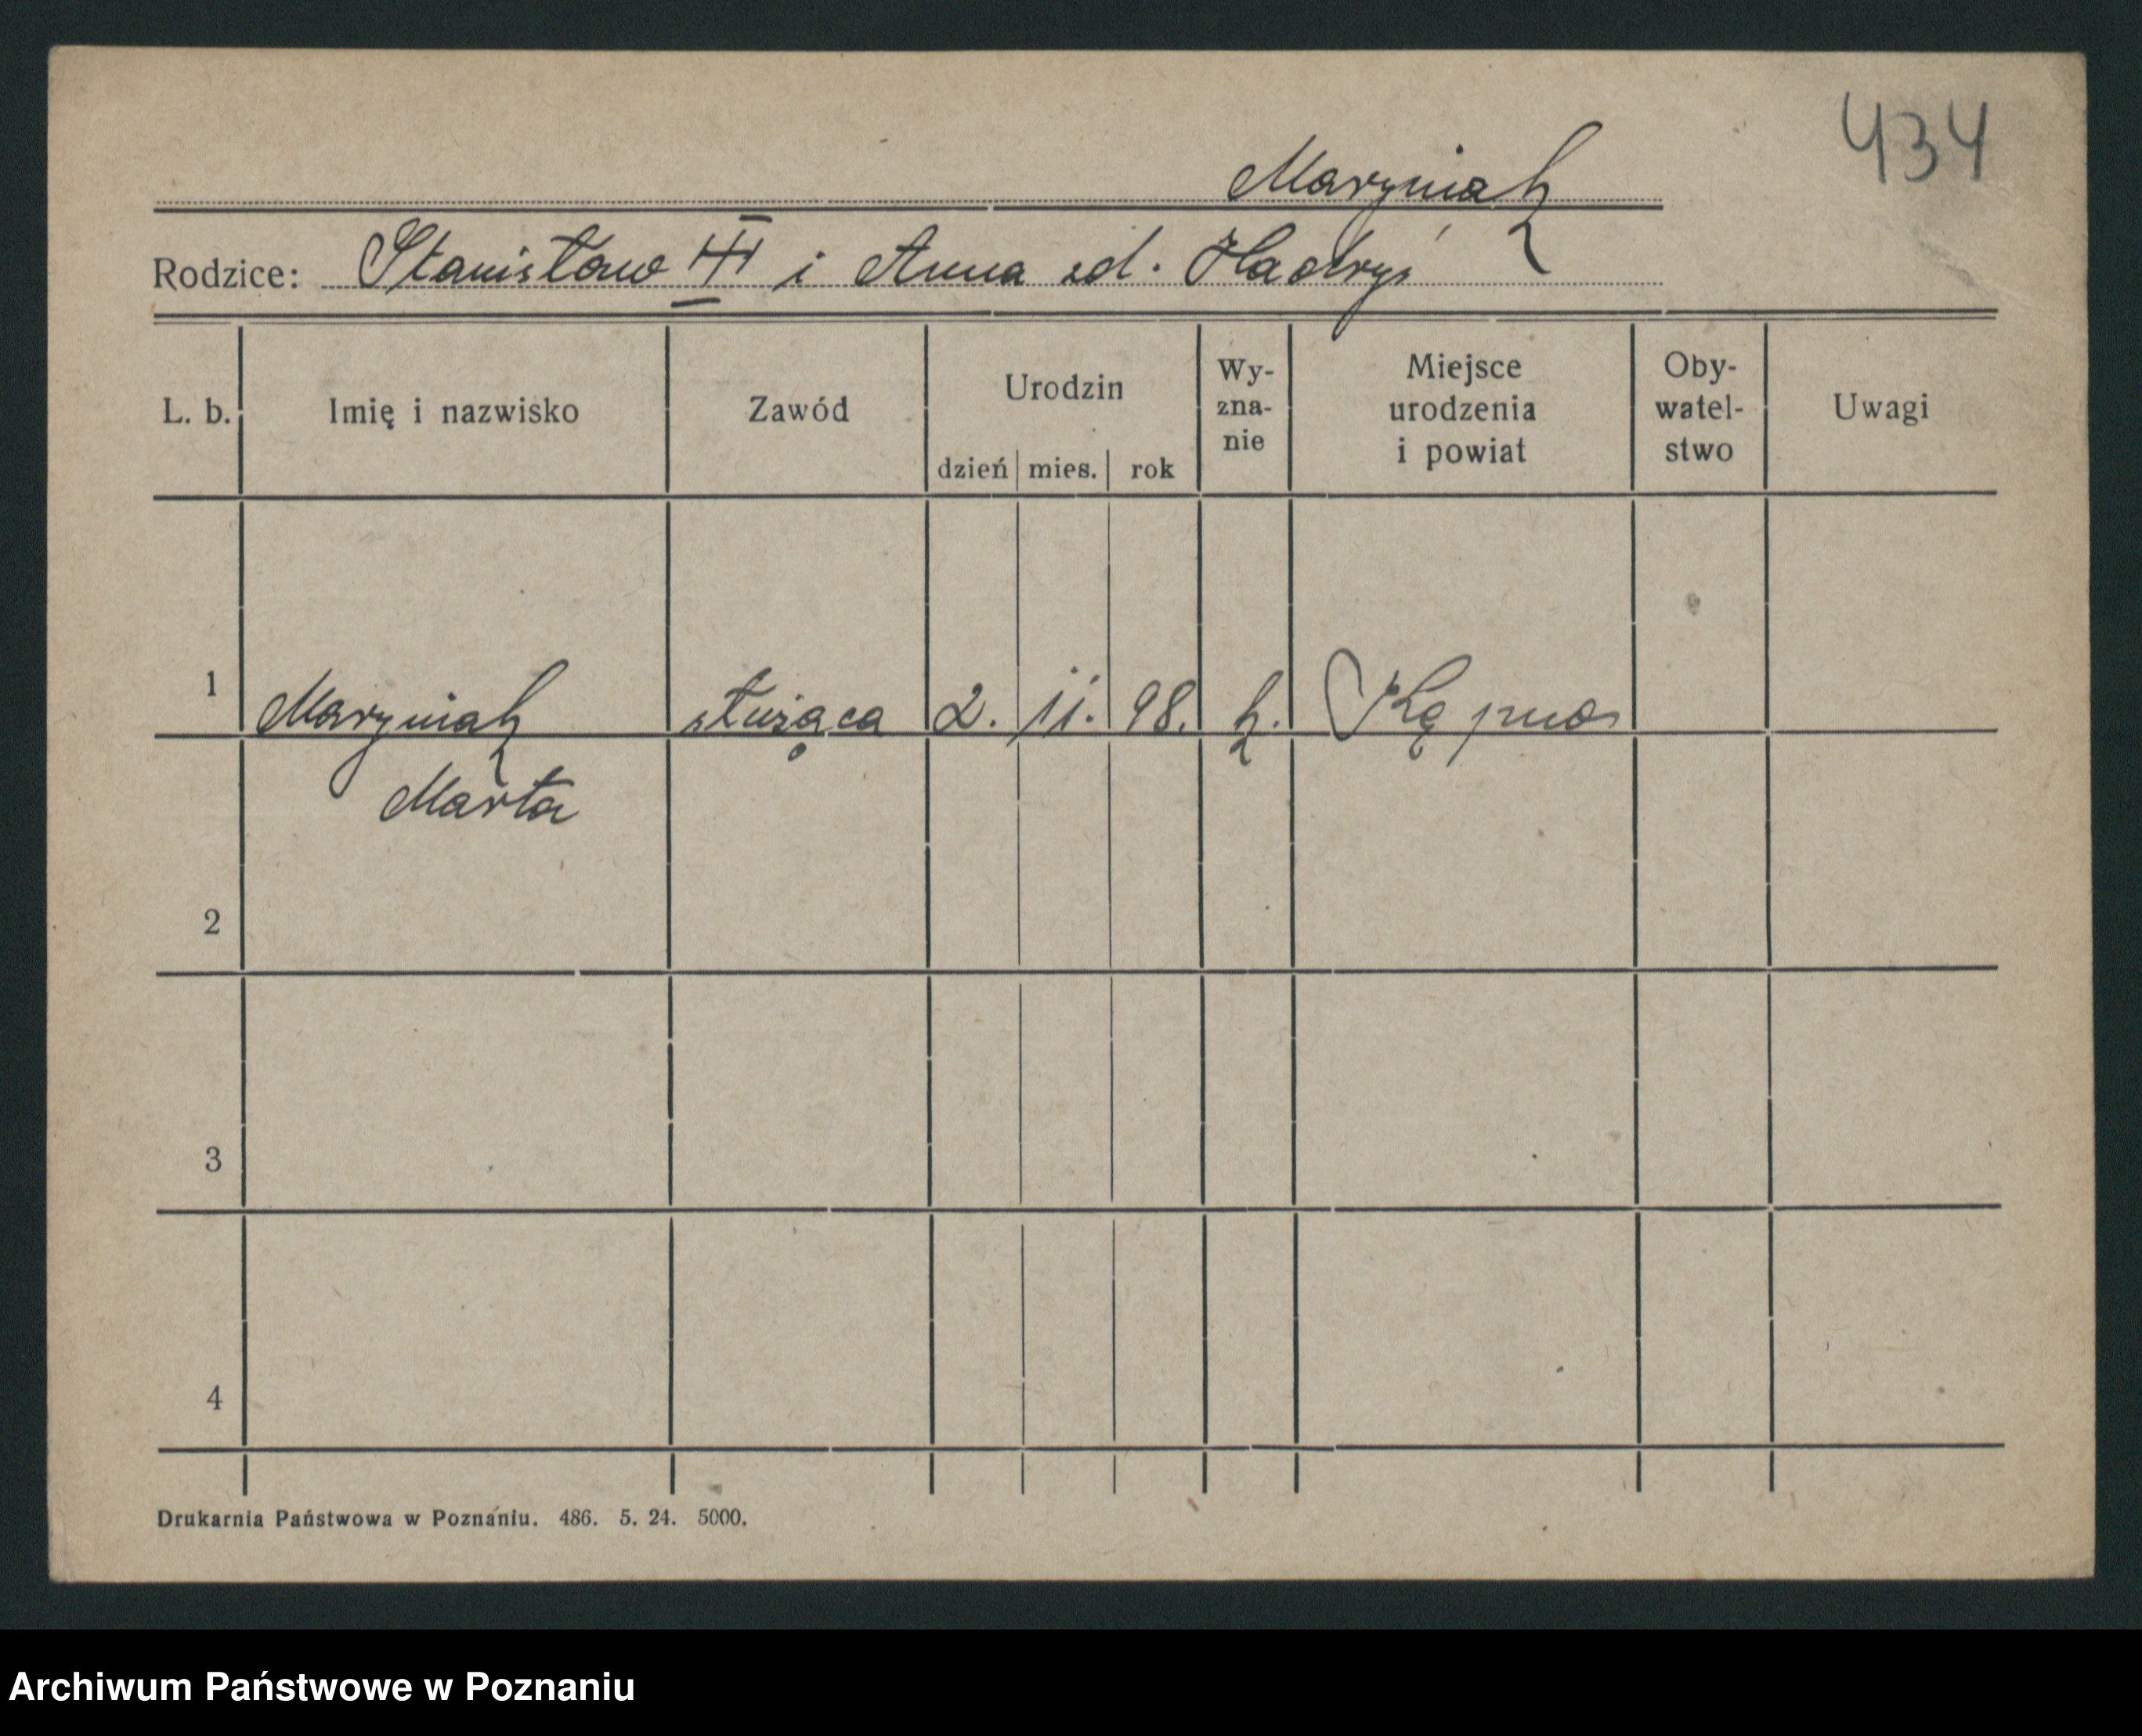 434
Maryniak
Rodzice: Stanisław i Anna zd. Hadryś
L. b. Imię i nazwisko Zawód Urodzin dzień mies. rok Wy-zna-nie Miejsce urodzenia i powiat Oby-watel-stwo Uwagi
1 Maryniak służąca 2. 11. 98. k. Kępno
Marta
2
3
4
Drukarnia Państwowa w Poznaniu. 486. 5. 24. 5000.
Archiwum Państwowe w Poznaniu